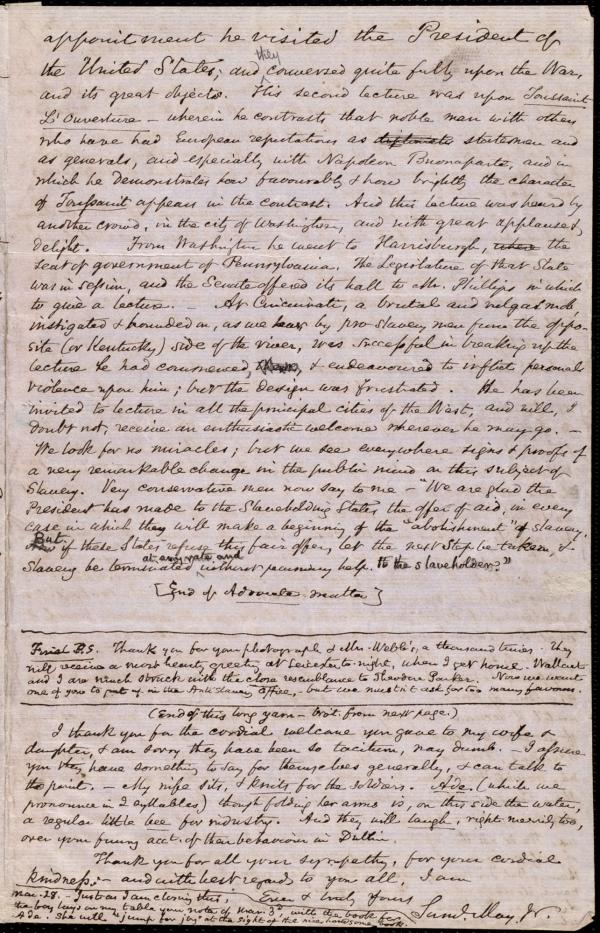 appointment he visited the President of
the United States; and they conversed quite fully upon the War,
and its great objects. His second lecture was upon Toussaint
L'Ouverture – wherein he contrasts that noble man with others
who have had European reputations as diplomats statesmen and
as generals, and especially with Napoleon Buonaparte, and in
which he demonstrates how favourably & how brightly the character
of Toussaint appears in the contrast. And this lecture was heard by
another crowd, in the city of Washington, and with great applause &
delight. From Washington he went to Harrisburgh, where the
seat of government of Pennsylvania. The Legislature of that State
was in session, and the Senate offered its hall to Mr. Phillips in which
to give a lecture. – At Cincinnati, a brutal and vulgar mob,
instigated & hounded on, as we hear by pro-slavery men from the oppo-
site (or Kentucky) side of the river, was successful in breaking up the
lecture he had commenced, & endeavoured to inflict personal
violence upon him; but the design was frustrated. He has been
invited to lecture in all the principal cities of the West, and will, I
doubt not, receive an enthusiastic welcome wherever he may go. –
We look for no miracles; but we see everywhere signs & proofs of
a very remarkable change in the public mind on this subject of
Slavery. Very conservative men now say to me – "We are glad the
President has made to the Slaveholding States the offer of aid, in every
case in which they will make a beginning of the "abolishment" of Slavery.
But if these States refuse this fair offer, let the next step be taken, &
Slavery be terminated at any rate and without pecuniary help to the slaveholder."
[End of Advocate matter]
Finish P.S. Thank you for your photograph & Mrs. Webb's, a thousand times. They
will receive a most hearty greeting at Leicester to-night, when I get home. Wallcut
and I are much struck with the close resemblance to Theodore Parker. Now we want
one of you to put up in the Anti Slavery Office, – but we mustn't ask for too many favours.
(End of this long yarn – bro't from next page.)
I thank you for the cordial welcome you gave to my wife &
daughter, & am sorry they have been so taciturn, nay dumb. – I assure
you they have something to say for themselves generally, & can talk to
the point. – My wife sits, & knits for the soldiers. Ade. (which we
pronounce in 2 syllables) though folding her arms so, on this side the water,
a regular little bee for industry. And they will laugh, right merrily too,
over your funny acct. of their behaviour in Dublin.
Thank you for all your sympathy, for your cordial
kindness – and with best regards to you all, I am
Ever & truly yours
Saml. May, Jr.
Mar. 28. – Just as I am closing this,
the boy lays on my table your note of Mar. 3d, with the book for
Ade. She will "jump for joy" at the sight of the nice handsome book.